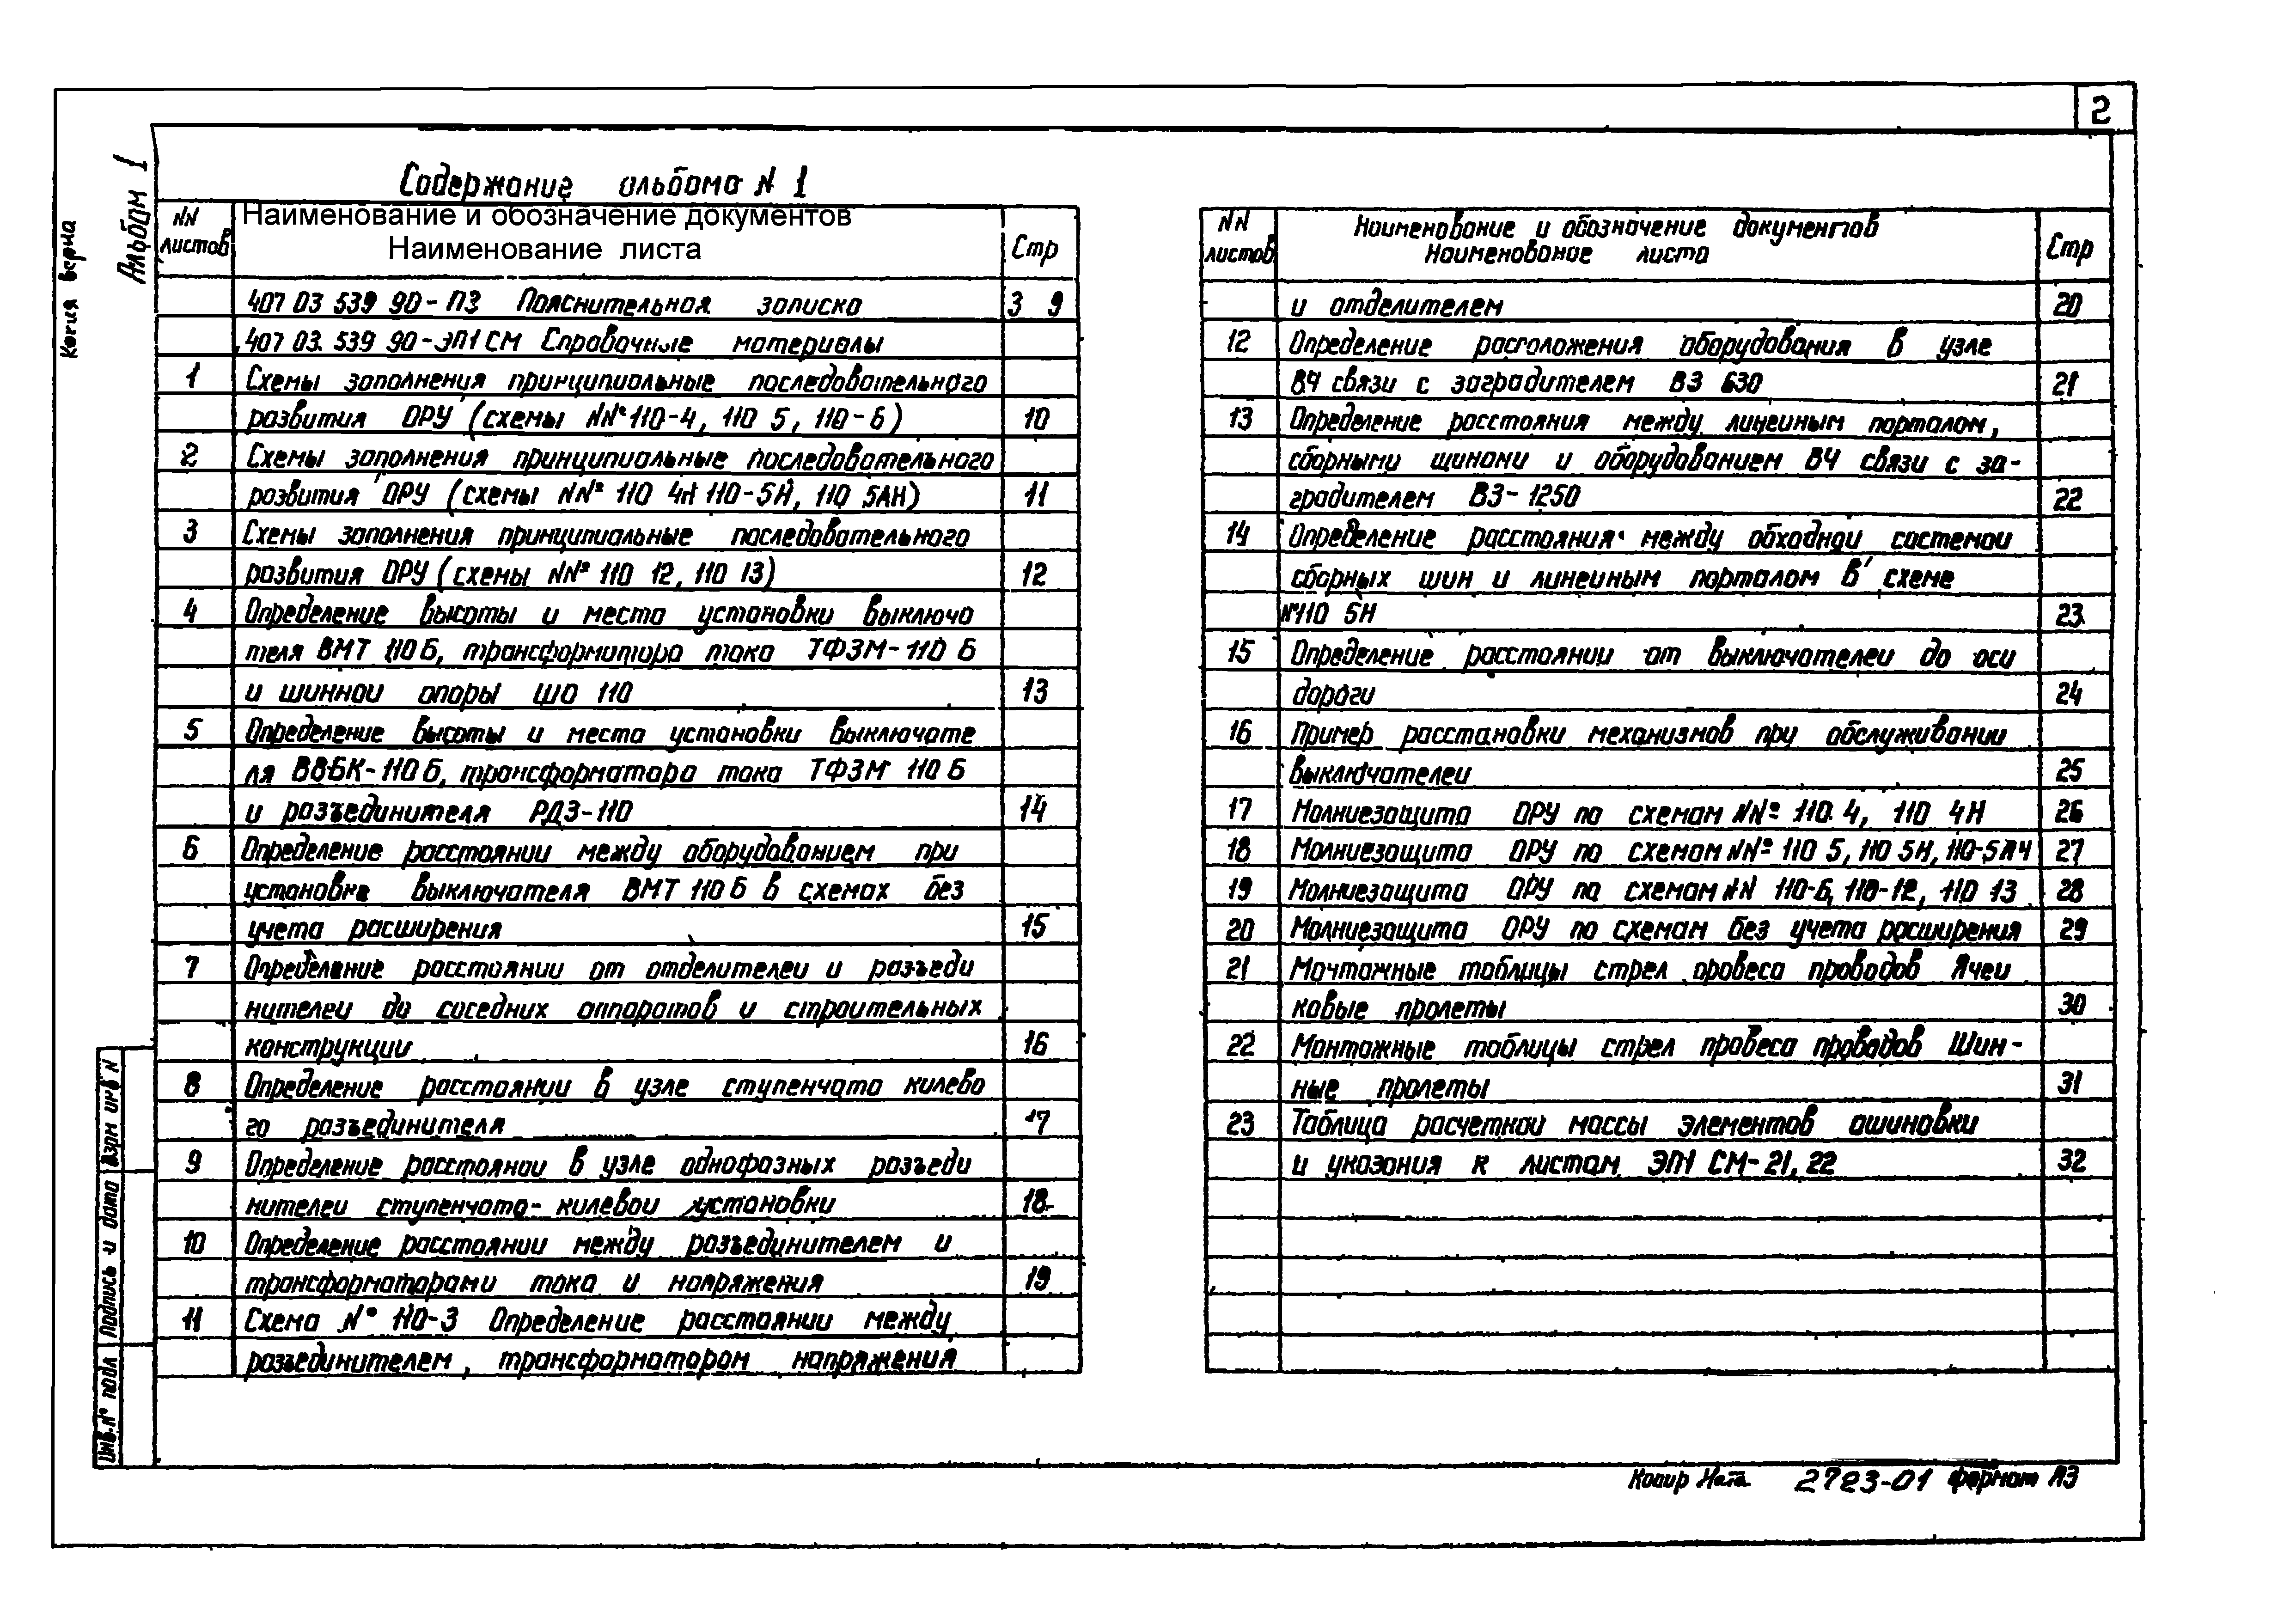 2
Копия верна
Альбом 1
Содержание альбома N 1
NN листов
Наименование и обозначение документов
Наименование листа
Стр
407 03 539 90-ПЗ Пояснительная записка 3 9
407 03. 539 90-ЭП1 СМ Справочные материалы
1 Схемы заполнения принципиальные последовательного
развития ОРУ (схемы NN° 110-4, 110 5, 110-6) 10
2 Схемы заполнения принципиальные последовательного
развития ОРУ (схемы NN° 110 4Н 110-5Н, 110 5АН) 11
3 Схемы заполнения принципиальные последовательного
развития ОРУ (схемы NN° 110 12, 110 13) 12
4 Определение высоты и места установки выключа
теля ВМТ 110Б, трансформатора тока ТФЗМ-110 Б
и шиннои опоры ШО 110 13
5 Определение высоты и места установки выключате
ля ВВБК-110Б, трансформатора тока ТФЗМ 110 Б
и разъединителя РДЗ-110 14
6 Определение расстоянии между оборудованием при
установке выключателя ВМТ 110 Б в схемах без
учета расширения 15
7 Определение расстоянии от отделителеи и разъеди
нителеи до соседних аппаратов и строительных
конструкции 16
8 Определение расстоянии в узле ступенчато килево
го разъединителя 17
9 Определение расстоянии в узле однофазных разъеди
нителеи ступенчато-килевои установки 18
10 Определение расстоянии между разъединителем и
трансформаторами тока и напряжения 19
11 Схема N° 110-3 Определение расстоянии между
разъединителем, трансформатором напряжения
NN листов
Наименование и обозначение документов
Наименование листа
Стр
и отделителем 20
12 Определение расположения оборудования в узле
ВЧ связи с заградителем ВЗ 630 21
13 Определение расстояния между линеиным порталом,
сборными шинами и оборудованием ВЧ связи с за-
градителем ВЗ-1250 22
14 Определение расстояния между обходнои системои
сборных шин и линеиным порталом в схеме
N°110 5Н 23
15 Определение расстоянии от выключателеи до оси
дороги 24
16 Пример расстановки механизмов при обслуживании
выключателеи 25
17 Молниезащита ОРУ по схемам NN° 110. 4, 110 4Н 26
18 Молниезащита ОРУ по схемам NN° 110 5, 110 5Н, 110-5АЧ 27
19 Молниезащита ОРУ по схемам NN 110-6, 110-12, 110 13 28
20 Молниезащита ОРУ по схемам без учета расширения 29
21 Монтажные таблицы стрел провеса проводов Ячеи
ковые пролеты 30
22 Монтажные таблицы стрел провеса проводов Шин-
ные пролеты 31
23 Таблица расчетнои массы элементов ошиновки
и указания к листам ЭП1 СМ-21, 22 32
Взам инв N
Подпись и дата
Инв. N° подл
Копир Ната 2723-01 формат А3